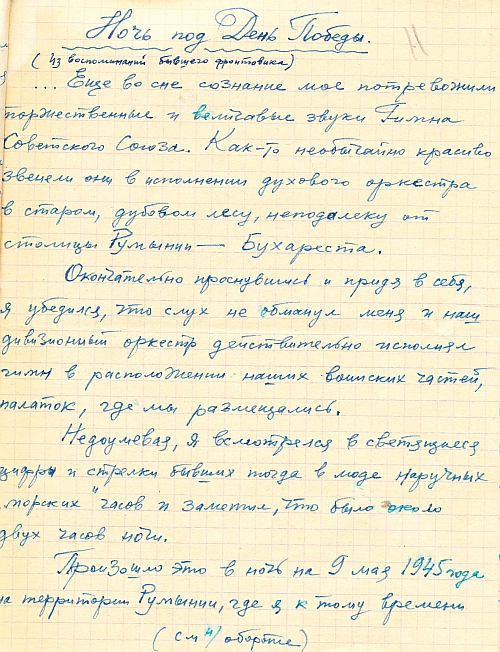 Ночь под День Победы.
(из воспоминаний бывшего фронтовика)
... Еще во сне сознание мое потревожили
торжественные и величавые звуки Гимна
Советского Союза. Как-то необычайно красиво
звенели они в исполнении духового оркестра
в старом, дубовом лесу, неподалеку от
столицы Румынии — Бухареста.
Окончательно проснувшись и придя в себя,
я убедился, что слух не обманул меня и наш
дивизионный оркестр действительно исполнял
гимн в расположении наших воинских частей,
палаток, где мы размещались.
Недоумевая, я всмотрелся в светящиеся
цифры и стрелки бывших тогда в моде наручных
"морских" часов и заметил, что было около
двух часов ночи.
Произошло это в ночь на 9 мая 1945 года
на территории Румынии, где я к тому времени
(см н/обороте)